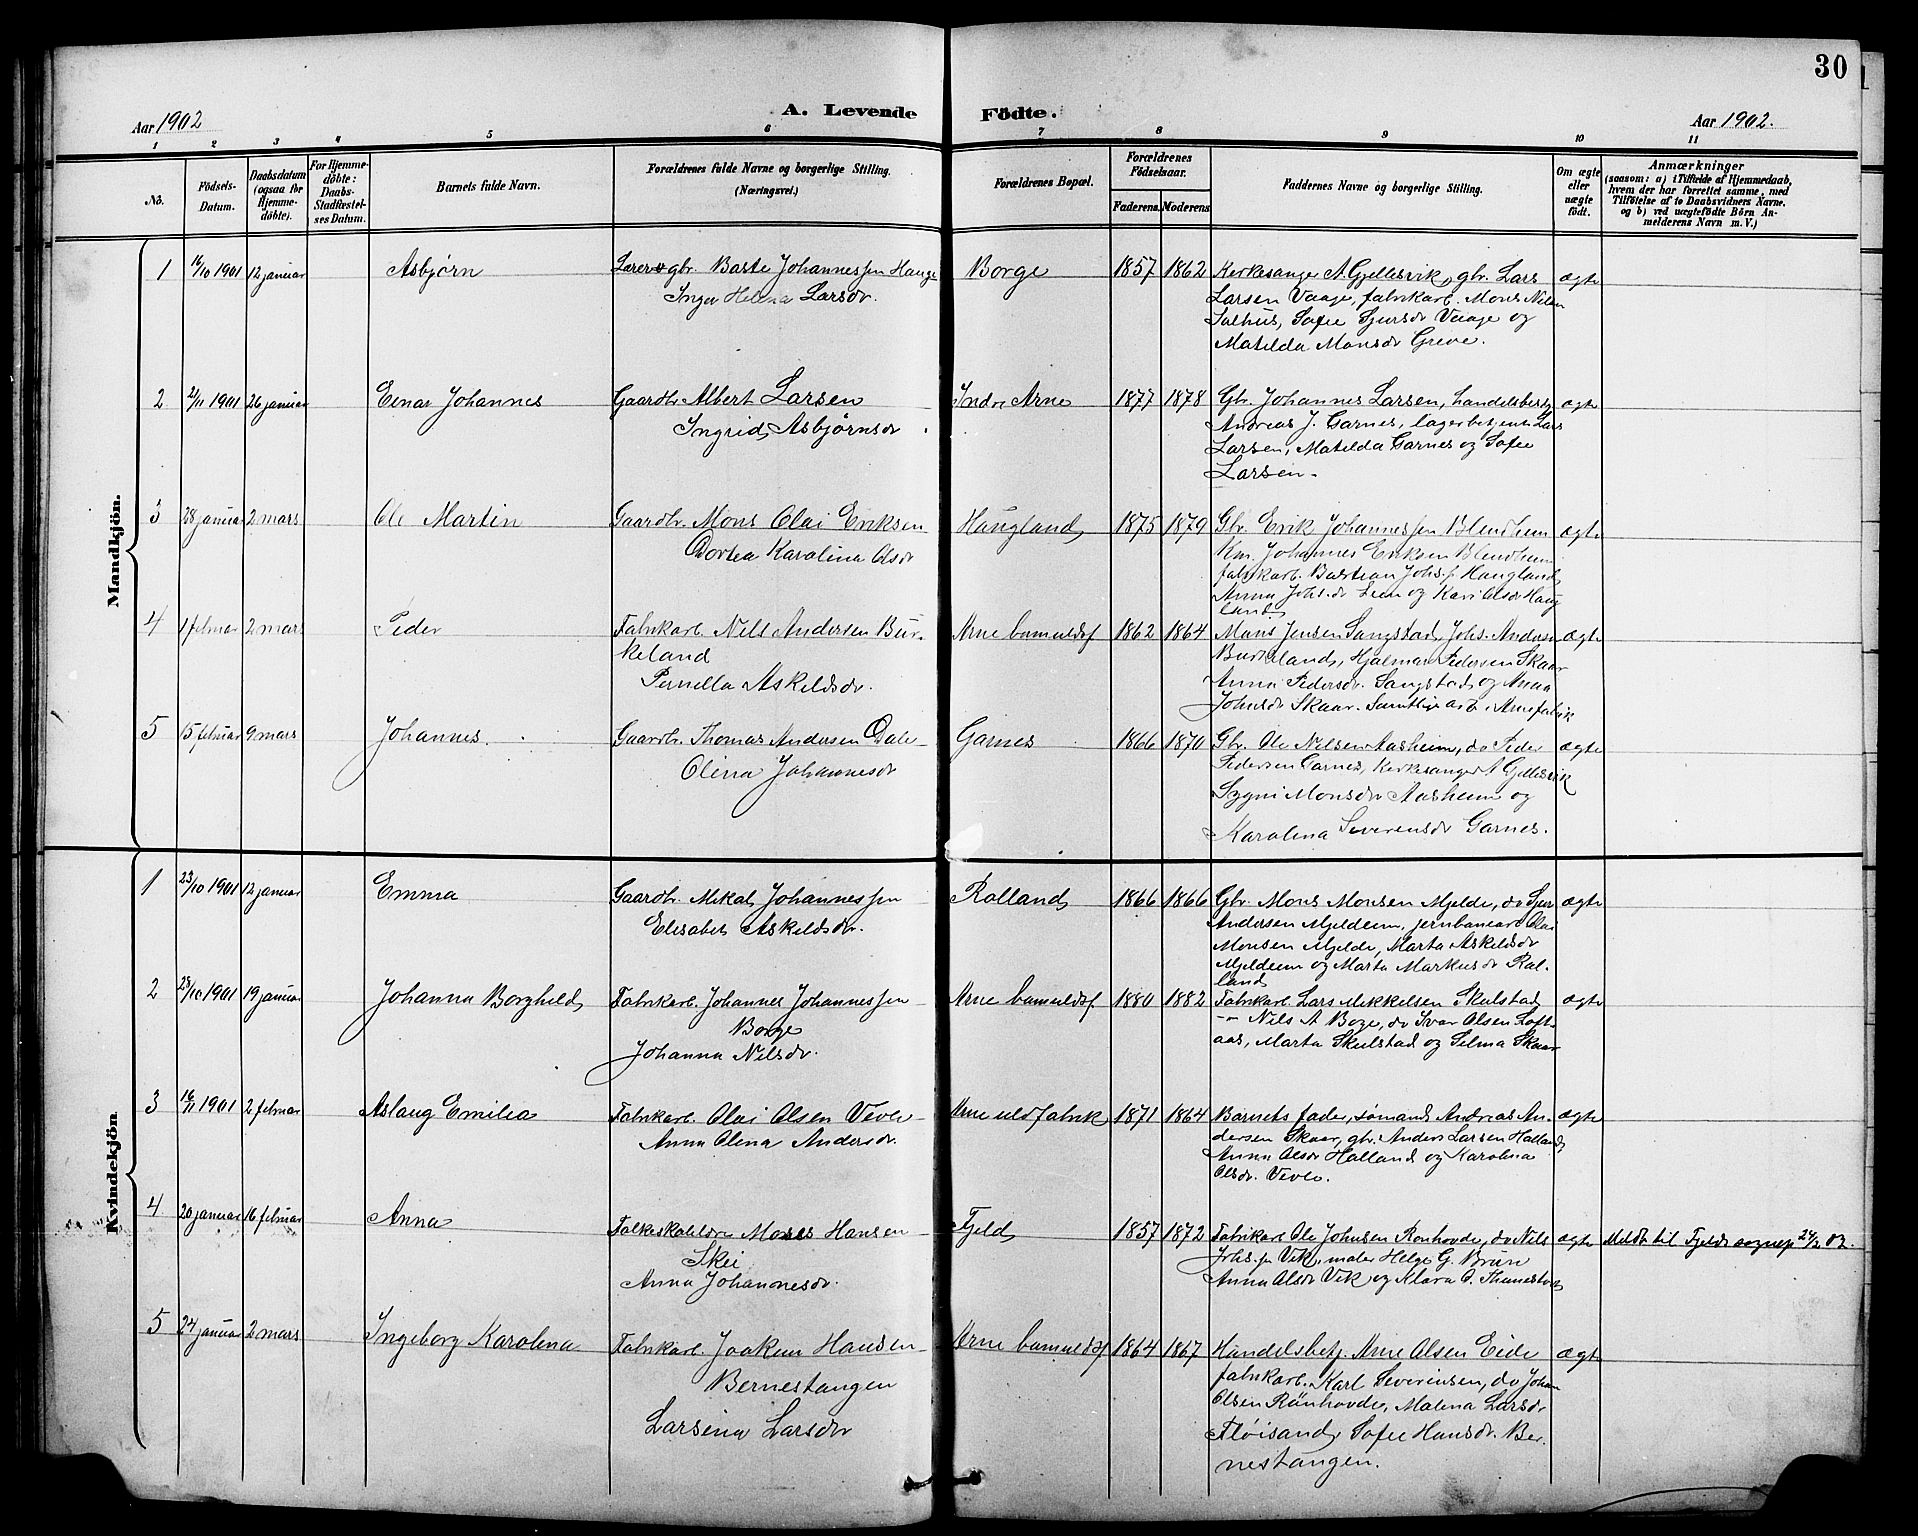 30
A. Levende Födte.
Aar 1902
Aar 1902.
1 2 3 4 5 6 7 8 9 10 11
No.
Födsels-Datum.
Daabsdatum (ogsaa for Hjemme-döbte).
For Hjemme-döbte: Daabs-Stadfæstel-ses Datum.
Barnets fulde Navn.
Forældrenes fulde Navne og borgerlige Stilling.
(Næringsvei.)
Forældrenes Bopæl.
Forældrenes Födselsaar.
Faderens. Moderens
Faddernes Navne og borgerlige Stilling.
Om ægte eller uægte födt.
Anmærkninger
(saasom: a) i Tilfælde af Hjemmedaab,
hvem der har forrettet samme, med
Tilföielse af to Daabsvidners Navne.
og b) ved uægtefödte Börn An-
melderens Navn m. V.)
Mandkjön.
1 16/10 1901 12 januar Asbjørn Lærer & gbr. Baste Johannessen Hauge Borge 1857 1862 Kirkesanger A Gjellesvik, gbr. Lars ægte
Inger Helena Larsdr. Larsen Vaage, fabrikarb. Mons Nilsen
Salhus, Sofie Sjursdr Vaage og
Matilda Monsdr Greve.
2 2/11 1901 26 januar Einar Johannes Gaardbr Albert Larsen Indre Arne 1877 1878 Gbr. Johannes Larsen, handelsbestj ægte
Ingrid Asbjørnsdr Andreas J. Garnes, lagerbetjent Lars
Larsen, Matilda Garnes og Sofie
Larsen.
3 28 januar 2 mars Ole Martin Gaardbr. Mons Olai Eriksen Haugland 1875 1879 Gbr. Erik Johannessen Blendheim ægte
Dortea Karolina Olsdr Km. Johannes Eriksen Blindheim
fabrikarb. Bastian Johs.s. Haugland
Anna Johs.dr Lien og Kari Olsdr Haug
land
4 1 februar 2 mars Peder Fabrikarb. Nils Andersen Bur- Arne bomuldsf 1862 1864 Mons Jensen Sangstad, Johs. Andersen ægte
keland Burkeland, Hjalmar Pedersen Skaar
Pernella Askeldsdr. Anna Pedersdr. Sangstad og Anna
Johnsdr Skaar. Samtlige arb. i Arnefabrik
5 15 februar 9 mars Johannes. Gaardbr. Thomas Andersen Dale Garnes 1866 1870 Gbr. Ole Nilsen Aasheim, do Peder ægte
Olina Johannesdr Pedersen Garnes, Kirkesanger A Gjellesvik
Sygni Monsdr Aasheim og
Karolina Severensdr Garnes.
Kvindekjön
1 23/10 1901 12 januar Emma Gaardbr. Mikal Johannessen Rolland 1866 1866 Gbr. Mons Monsen Mjelde, do Sjur ægte
Elisabet Askeldsdr. Andersen Mjeldeim, jernbanearb Olai
Monsen Mjelde, Marta Askeldsdr
Mjeldeim og Marta Markusdr Rol-
land
2 25/10 1901 19 januar Johanna Borghild Fabrikarb. Johannes Johannessen Arne bomuldsf 1880 1882 Fabrikarb. Lars Mikkelsen Skulstad ægte
Borge -"- Nils A Boge, do Ivar Olsen Loft-
Johanna Nilsdr. aas, Marta Skulstad og Selma Skaar
3 16/11 1901 2 februar Aslaug Emilia Fabrikarb. Olai Olsen Vevle Arne uldfabrik 1871 1864 Barnets fader, sømand Andreas An- ægte
Anna Olina Andersdr. dersen Skaar, gbr. Anders Larsen Halland
Anna Olsdr Halland og Karolina
Olsdr. Vevle.
4 20 januar 16 februar Anna Folkeskolelærer Mons Hansen Fjeld 1857 1872 Fabrikarb Ole Johnsen Rønhovde, do Nils ægte Meldt til Fjelds sognep 24/2 02.
Skei Johs.sn Vik, maler Helge G. Bruun
Anna Johannesdr. Anna Olsdr Vik og Klara O. Thunestvedt
5 24 januar 2 mars Ingeborg Karolina Fabrikarb. Joakim Hansen Arne bomuldsf 1864 1867 Handelsbetj. Arne Olsen Eide ægte
Bernestangen fabrikarb. Karl Severinsen, do Johan
Larsina Larsdr Olsen Rønhovde, Malena Larsdr
Fløisand, Sofie Hansdr. Ber-
nestangen.